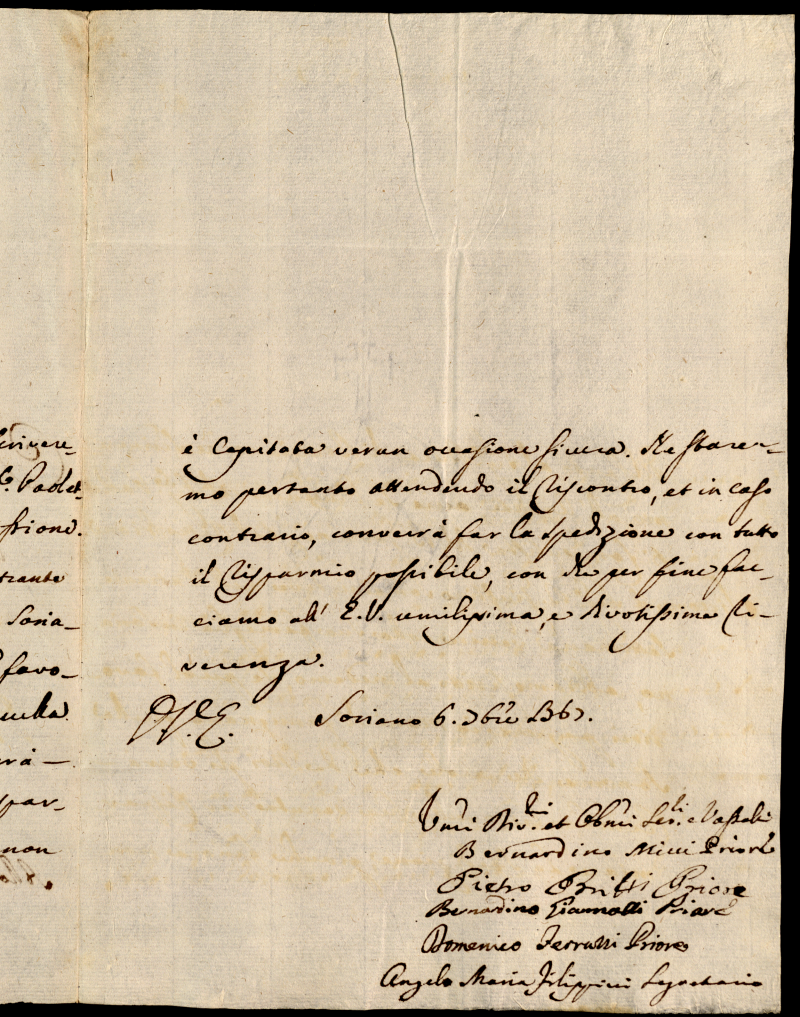 crivere-
Co. Paolet-
ssione.
trante
Soria-
favo-
uella
rà -
spar-
non
è Capitata verun occasione sicura. Restare-
mo pertanto attendendo il riscontro, et in caso
contrario, converrà far la spedizione con tutto
il risparmio possibile, con che per fine fac-
ciamo all' E.V. umilissima, e divotissima ri-
verenza.
D. V. E. Soriano 6. 7bre 1767.
Umi Div.mi et Obmi Ser.i e Vassalli
Bernardino Micci Priore
Pietro Britti Priore
Bernardino Giannotti Priore
Domenico Ferruzzi Priore
Angelo Maria Filippini Segretario